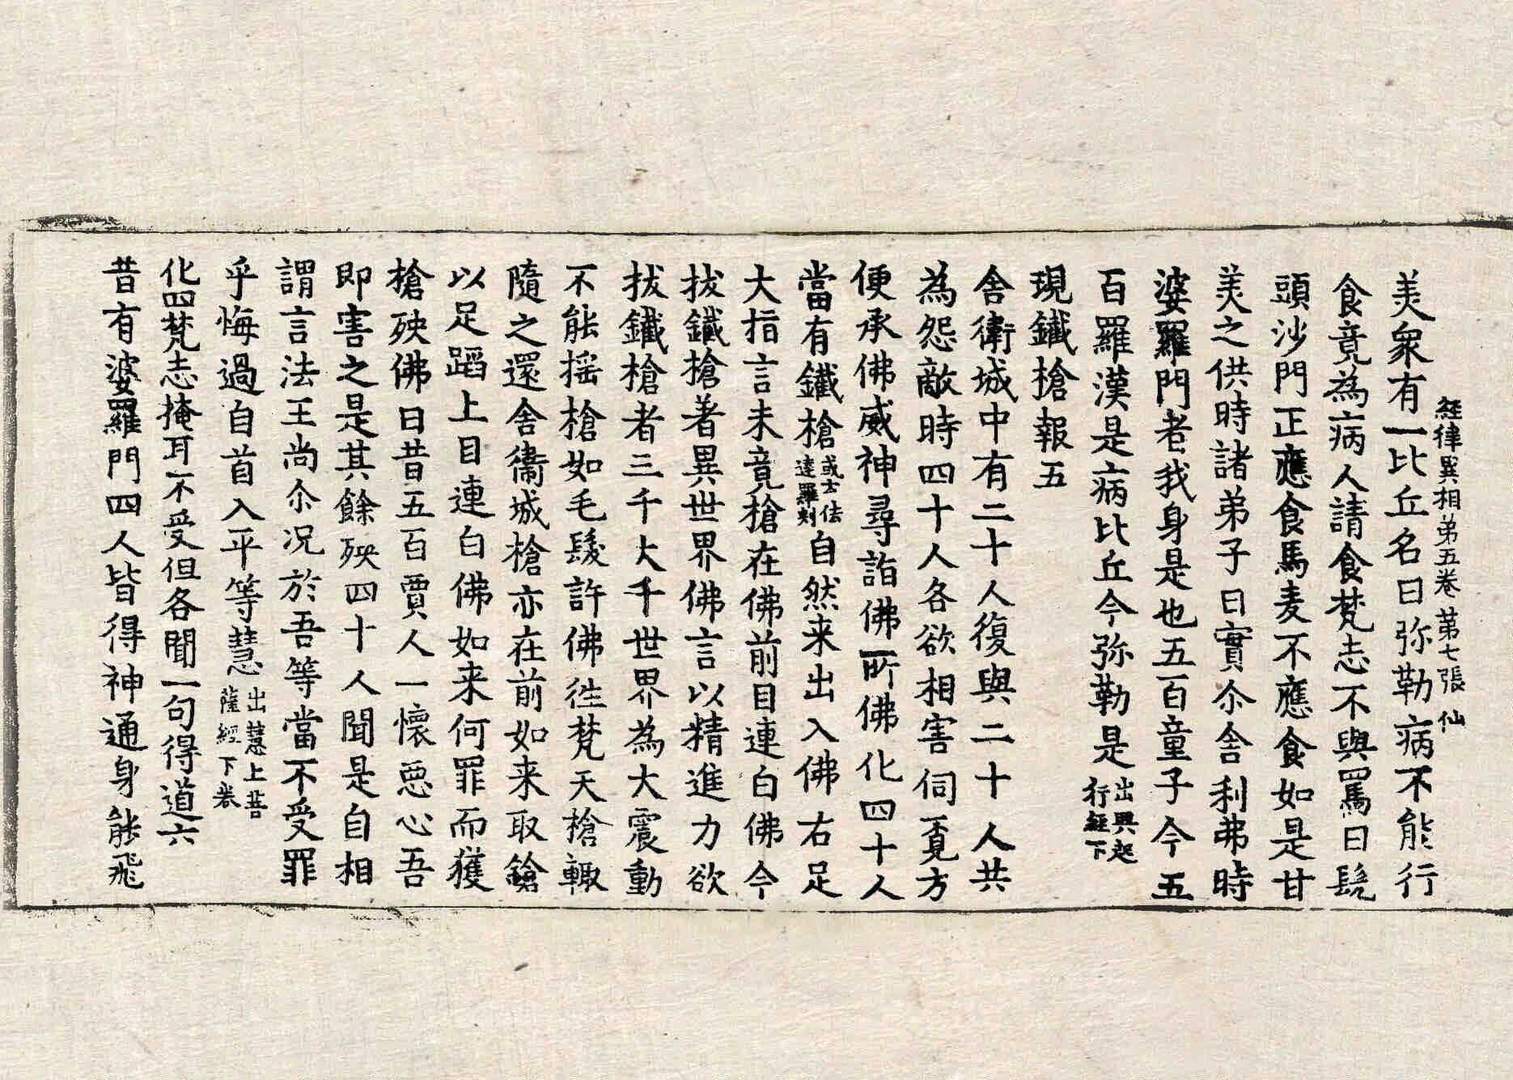 經律異相弟五卷 苐七張 仙
美衆有一比丘名曰弥勒病不能行
食竟為病人請食梵志不與罵曰髡
頭沙門正應食馬麦不應食如是甘
美之供時諸弟子曰實尒舍利弗時
婆羅門者我身是也五百童子今五
百羅漢是病比丘今弥勒是出興起行經下
現鐵槍報五
舍衛城中有二十人復與二十人共
為怨敵時四十人各欲相害伺覔方
便承佛威神尋詣佛所佛化四十人
當有鐵槍或云佉達羅刺自然来出入佛右足
大指言未竟槍在佛前目連白佛今
拔鐵槍著異世界佛言以精進力欲
拔鐵槍者三千大千世界為大震動
不能揺槍如毛髮許佛徃梵天槍輙
隨之還舍衞城槍亦在前如来取鎗
以足蹈上目連白佛如来何罪而獲
槍殃佛曰昔五百賈人一懷惡心吾
即害之是其餘殃四十人聞是自相
謂言法王尚尒况於吾等當不受罪
乎悔過自首入平等慧出慧上菩薩經下卷
化四梵志掩耳不受但各聞一句得道六
昔有婆羅門四人皆得神通身能飛